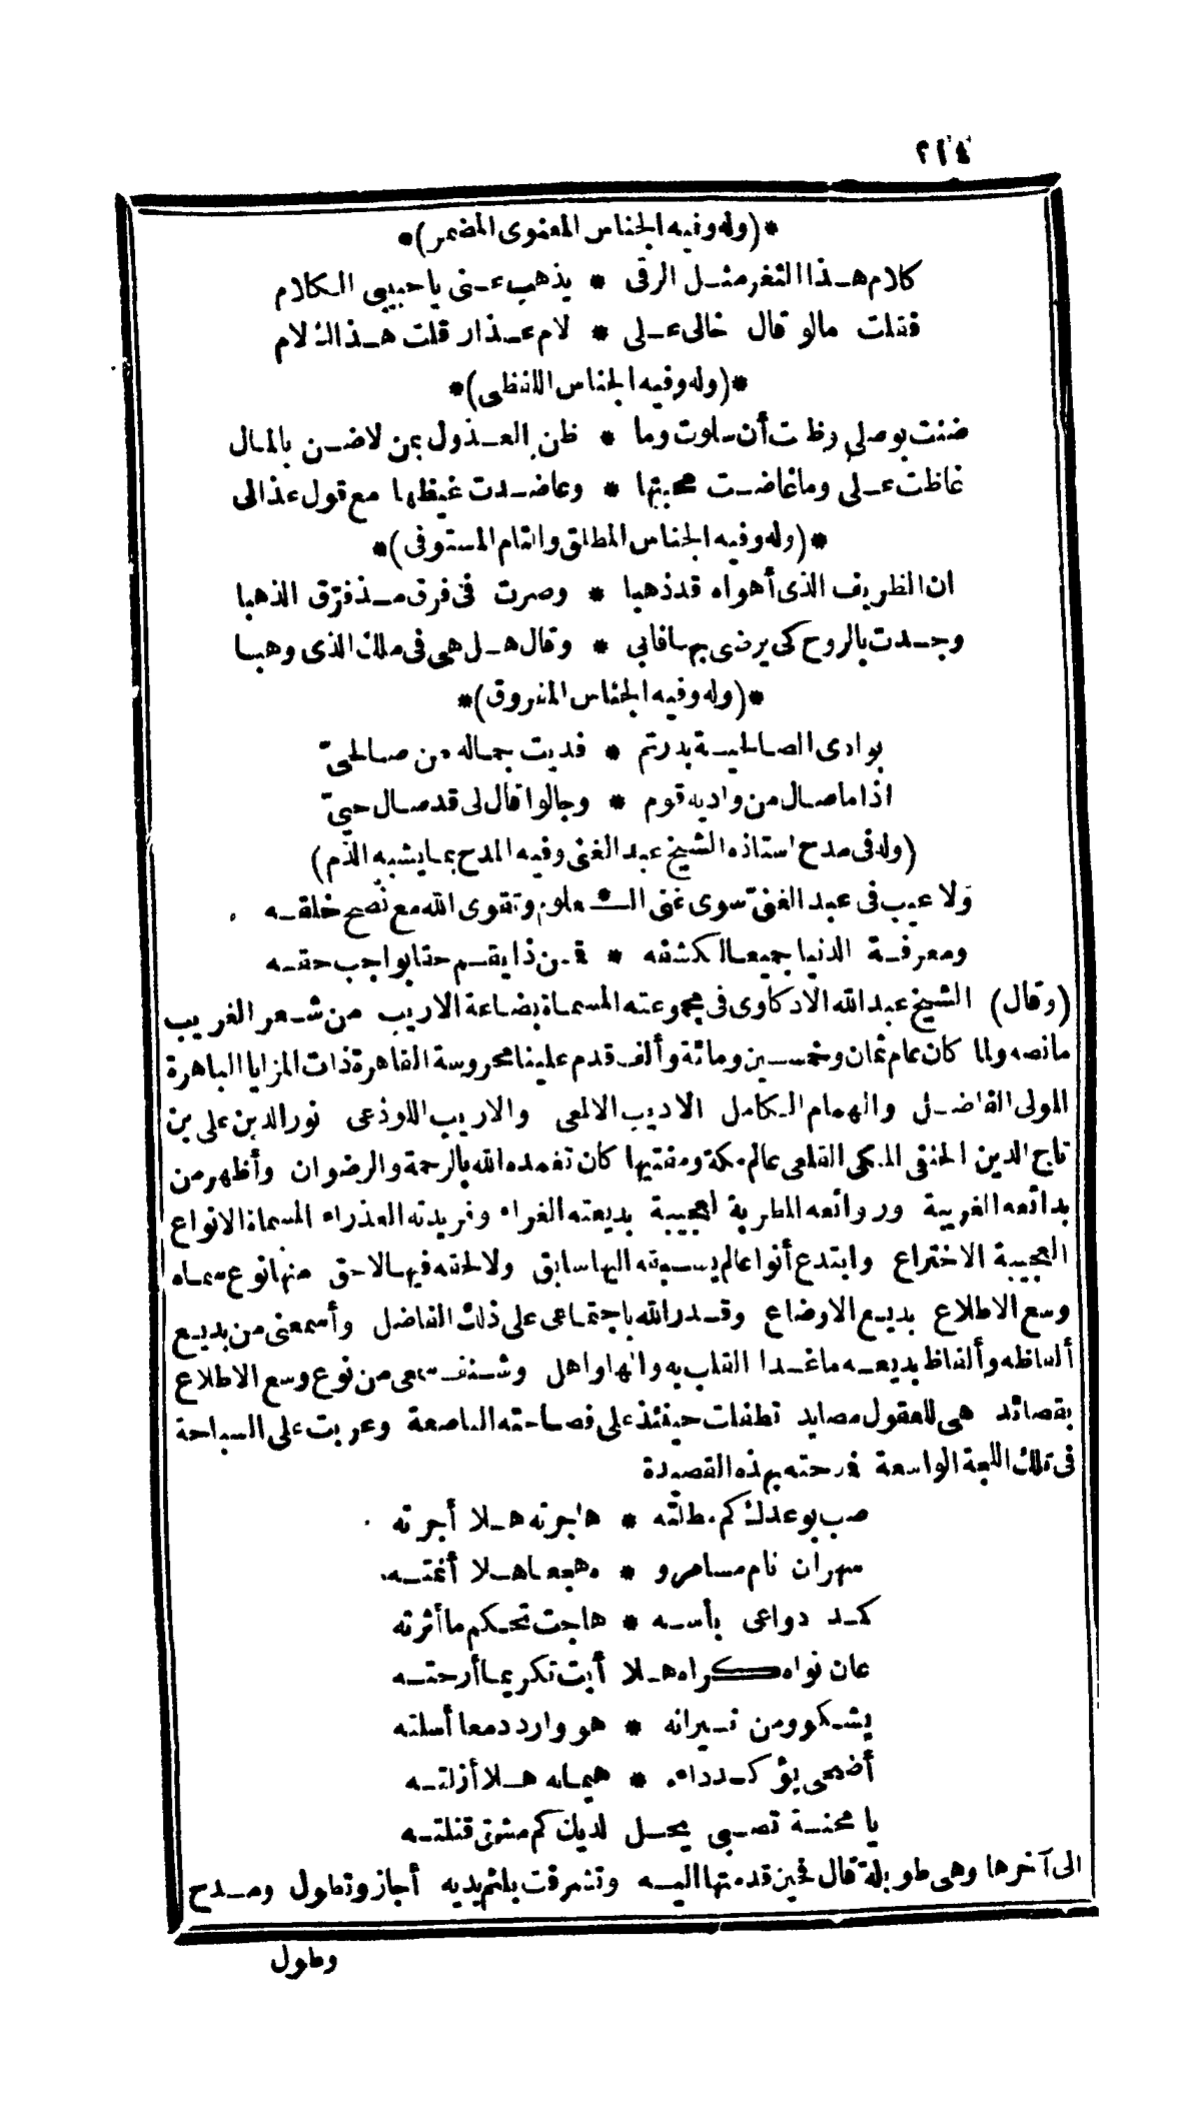 ٢١٤
*(وله وفيه الجناس المعنوى المضمر)*
كلام هذا الثغر مثل الرقى * يذهب عنى يا حبيبى الكلام
فقلت مالو قال خالى على * لام عذار قلت هذا الملام
*(وله وفيه الجناس اللفظى)*
ضننت بوصلى وظنت أن سلوت وما * ظن العذول بمن لاضن بالمال
غاظت على وما غاضت محبتها * وعاضدت غيظها مع قول عذالى
*(وله وفيه الجناس المطلق والتام المستوفى)*
ان الظريف الذى أهواه قد ذهبا * وصرت فى فرق مذ فرّق الذهبا
وجدت بالروح كى يرضى بها فابى * وقال هل هى فى ملك الذى وهبا
*(وله وفيه الجناس المفروق)*
بوادى الصالحية بدرتم * فديت جماله من صالحىّ
اذا ما صال من واديه قوم * وجالوا قال لى قد صال حيىّ
(وله فى مدح استاذه الشيخ عبد الغنى وفيه المدح بما يشبه الذم)
ولا عيب فى عبد الغنىّ سوى غنى الـ*ـعلوم وتقوى الله مع نصح خلقه
ومعرفة الدنيا جميعا لكشفه * فمن ذا يقم حقا بواجب حقه
(وقال) الشيخ عبد الله الادكاوى فى مجموعته المسماة بضاعة الاريب من شعر الغريب
مانصه ولما كان عام ثمان وخمسين ومائة وألف قدم علينا محروسة القاهرة ذات المزايا الباهرة
المولى الفاضل والهمام الكامل الاديب الالمعى والاريب اللوذعى نور الدين على بن
تاج الدين الحنفى المكى القلعى عالم مكة ومفتيها كان تغمده الله بالرحمة والرضوان وأظهر من
بدائعه الغريبة وروائعه المطربة العجيبة بديعته الغراء وفريدته العذراء المسماة الانواع
العجيبة الاختراع وابتدع أنواعا لم يسبقه اليها سابق ولا لحقه فيها لاحق منها نوع سماه
وسع الاطلاع بديع الاوضاع وقدر الله باجتماعى على ذلك الفاضل وأسمعنى من بديع
ألفاظه وألفاظ بديعه ما غدا القلب به والها واهل وشنف سمعى من نوع وسع الاطلاع
بقصائد هى للعقول مصايد تطفلت حينئذ على فصاحته الناصعة وعربت على السباحة
فى تلك اللجة الواسعة فمدحته بهذه القصيدة
صب بوعدك كم مطلته * هاجرته هلا أجرته
سهران نام مسامرو * ه هجعا هلا أنمته
كمد دواعى بأسه * هاجت تحكم ما أثرته
عان نواه كراه هلا أبت تكريما أرحته
يشكو ومن نيرانه * هو وارد دمعا أسلته
أضحى يؤكد داءه * هيمانه هلا أزلته
يا محنة تصبى يحل لديك كم مشوق قتلته
الى آخرها وهى طويلة قال فحين قدمتها اليه وتشرفت بلثم يديه أجاز وتطول ومدح
وطول